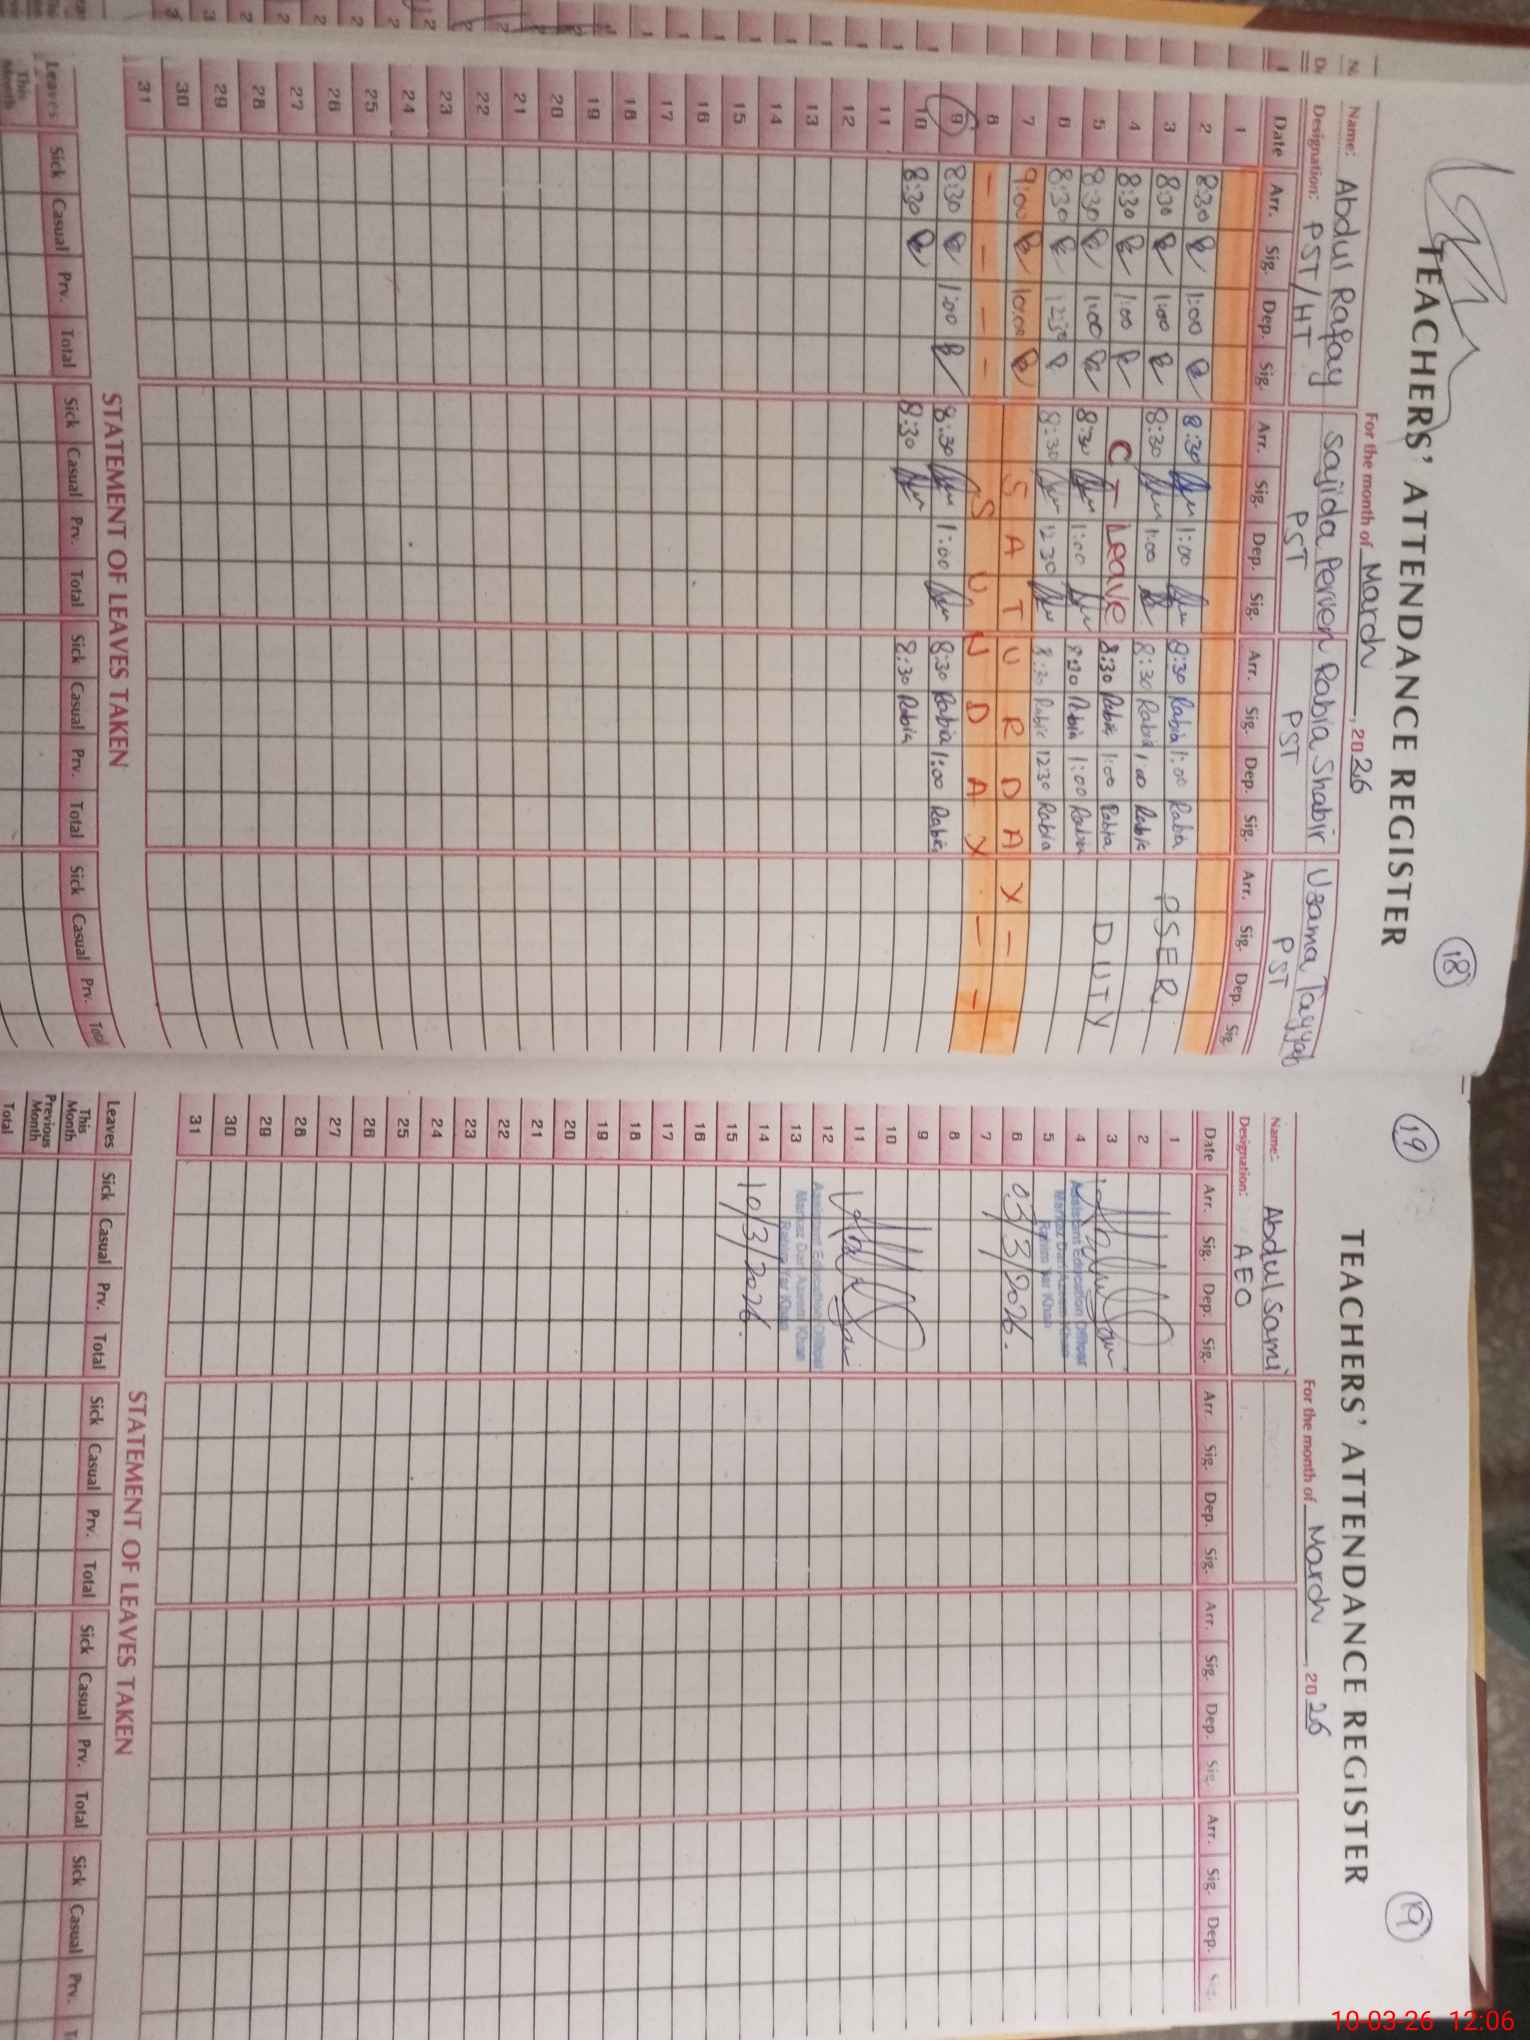 18
TEACHERS' ATTENDANCE REGISTER
For the month of March, 2026
Name: Abdul Rafay Sajida Perven Rabia Shabir Usama Tayyab
Designation: PST/HT PST PST PST
Date Arr. Sig. Dep. Sig. Arr. Sig. Dep. Sig. Arr. Sig. Dep. Sig. Arr. Sig. Dep. Sig.
1
2 8:30 1:00 8:30 1:00 8:30 Rabia 1:00 Rabia
3 8:30 1:00 8:30 1:00 8:30 Rabia 1:00 Rabia PSER
4 8:30 1:00 C-Leave 8:30 Rabia 1:00 Rabia
5 8:30 1:00 8:30 1:00 8:30 Rabia 1:00 Rabia DUTY
6 8:30 12:30 8:30 12:30 8:30 Rabia 12:30 Rabia
7 9:00 10:00 SATURDAY -
8 - - - - SUNDAY - - -
9 8:30 1:00 8:30 1:00 8:30 Rabia 1:00 Rabia
10 8:30 8:30 8:30 Rabia
11
12
13
14
15
16
17
18
19
20
21
22
23
24
25
26
27
28
29
30
31
STATEMENT OF LEAVES TAKEN
Leaves Sick Casual Prv. Total Sick Casual Prv. Total Sick Casual Prv. Total Sick Casual Prv. Total
This Month
19
TEACHERS' ATTENDANCE REGISTER
19
For the month of March, 2026
Name: Abdul Sami
Designation: AEO
Date Arr. Sig. Dep. Sig. Arr. Sig. Dep. Sig. Arr. Sig. Dep. Sig. Arr. Sig. Dep. Sig.
1
2
3
4 Assistant Education Officer
5 Markaz Dari Azeem Khan
Rahim Yar Khan
6 03/3/2026.
7
8
9
10
11
12 Assistant Education Officer
13 Markaz Dari Azeem Khan
Rahim Yar Khan
14 10/3/2026.
15
16
17
18
19
20
21
22
23
24
25
26
27
28
29
30
31
STATEMENT OF LEAVES TAKEN
Leaves Sick Casual Prv. Total Sick Casual Prv. Total Sick Casual Prv. Total Sick Casual Prv.
This Month
Previous Month
Total
10-03-26 12:06